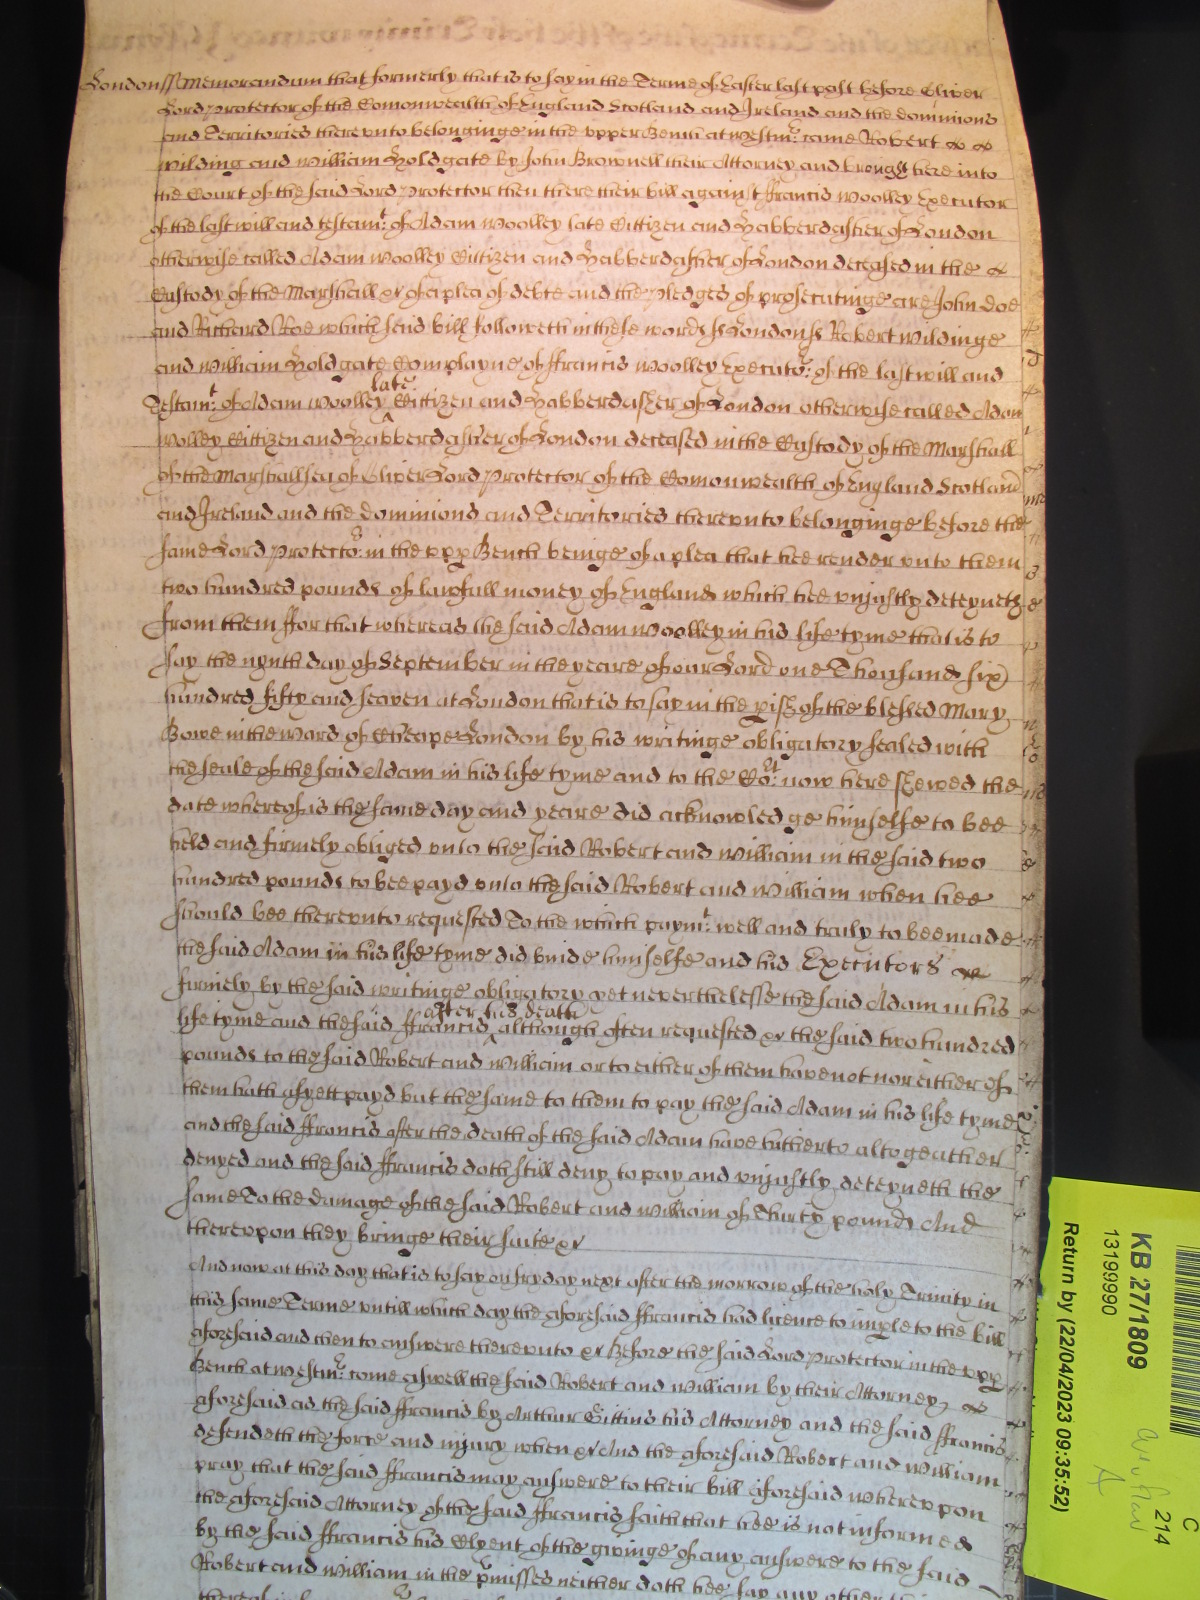 London ss Memorandum that formerly that is to say in the Terme of Easter last past before Oliver
Lord Protector of the Comonwealth of England Scotland and Ireland and the dominions
and Territories therevnto belonginge in the vpper Bench at Westmr: came Robert
Wilding and William Holdgate by John Brownell their Attorney and brought here into
the Court of the said Lord Protector then there their bill against ffrancis Woolley Executor
of the last will and testamt: of Adam Woolley late Cittizen and Habberdasher of London
otherwise called Adam Woolley Cittizen and Habberdasher of London deceased in the
Custody of the Marshall &c of a plea of debte and the pledges of prosecutinge are John Doe
and Richard Roe which said bill followeth in these words ss London ss Robert Wildinge
and William Holdgate Complayne of ffrancis Woolley Executor: of the last will and
Testamt: of Adam Woolley late Cittizen and Habberdasher of London otherwise called Adam
Wolley Cittizen and Habberdasher of London deceased in the Custody of the Marshall
of the Marshallsea of Oliver Lord Protector of the Comonwealth of England Scotland
and Ireland and the dominions and Territories therevnto belonginge before the
same Lord Protector: in the vpp Bench beinge of a plea that hee render vnto them
two hundred pounds of lawfull money of England which hee vniustly deteyneth
from them ffor that whereas the said Adam Woolley in his life tyme that is to
say the nynth day of September in the yeare of our Lord one Thousand six
hundred fifty and seaven at London that is to say in the pish of the blessed Mary
Bowe in the Ward of Cheape London by his writinge obligatory sealed with
the seale of the said Adam in his life tyme and to the Cort: now here shewed the
date whereof is the same day and yeare did acknowledge himselfe to bee
held and firmely obliged vnto the said Robert and William in the said two
hundred pounds to bee payd vnto the said Robert and William when hee
should bee therevnto requested To the which paymt: well and truly to bee made
the said Adam in his life tyme did binde himselfe and his Executors
firmely by the said writinge obligatory yet neverthelesse the said Adam in his
life tyme and the said ffrancis after his death although often requested &c the said two hundred
pounds to the said Robert and William or to either of them have not nor either of
them hath as yett payd but the same to them to pay the said Adam in his life tyme
and the said ffrancis after the death of the said Adam have hitherto altogeather
denyed and the said ffrancis doth still deny to pay and vniustly deteyneth the
same To the damage of the said Robert and William of Thirty pounds And
therevpon they bringe their suite &c
And now at this day that is to say on fryday next after the morrow of the holy Trinity in
this same Terme vntill which day the aforesaid ffrancis had licence to imple to the bill
aforesaid and then to answere therevnto &c Before the said Lord Protector in the vpp
Bench at Westmr: come aswell the said Robert and William by their Attorney
aforesaid as the said ffrancis by Arthur Gittins his Attorney and the said ffrancis
defendeth the force and iniury when &c And the aforesaid Robert and William
pray that the said ffrancis may answere to their bill aforesaid wherevpon
the aforesaid Attorney of the said ffrancis saith that hee is not informed
by the said ffrancis his Clyent of the givinge of any answere to the said
Robert and William in the pmisses neither doth hee say any other
KB 27/1809
13199990
Return by (22/04/2023 09:35:52)
C
214
A